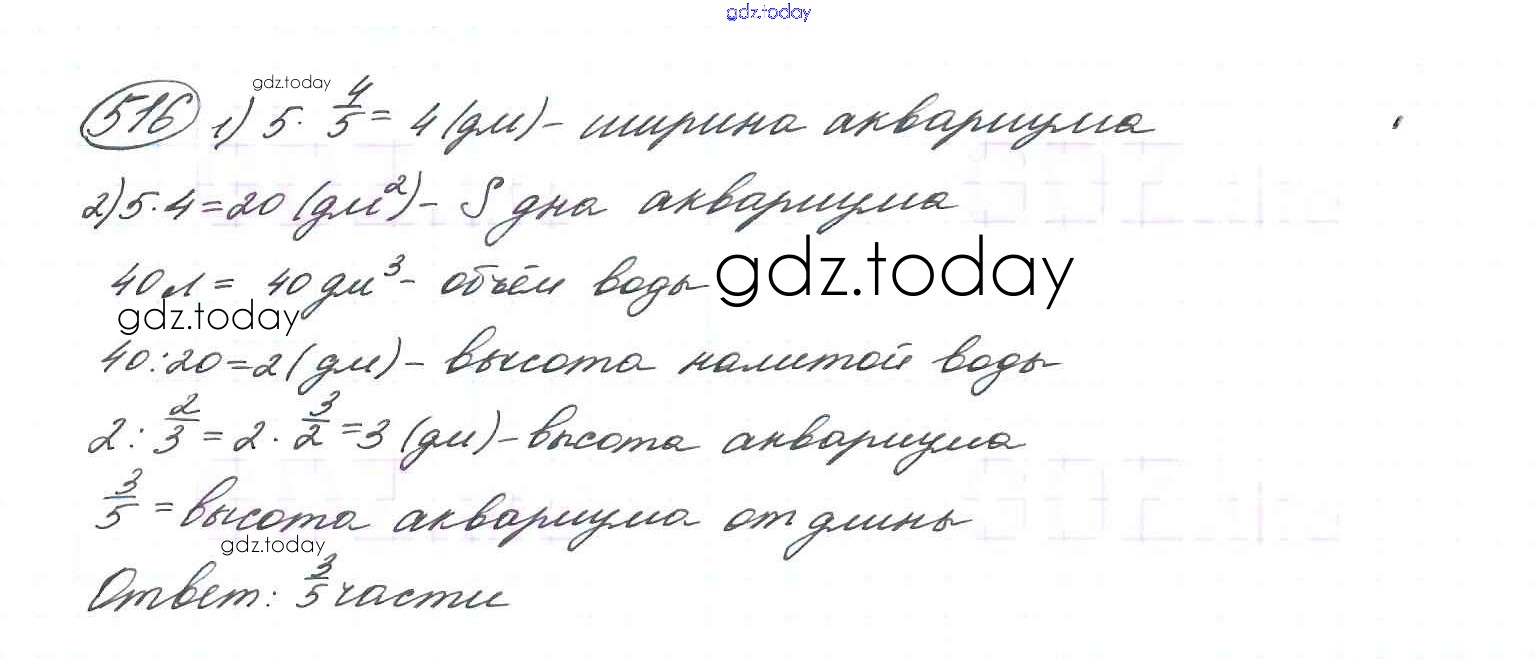 gdz.today
gdz.today
516 1) 5 · 4/5 = 4 (дм) - ширина аквариума
2) 5 · 4 = 20 (дм²) - S дна аквариума
40 л = 40 дм³ - объём воды gdz.today
gdz.today
40 : 20 = 2 (дм) - высота налитой воды
2 : 2/3 = 2 · 3/2 = 3 (дм) - высота аквариума
3/5 = высота аквариума от длины
gdz.today
Ответ: 3/5 части